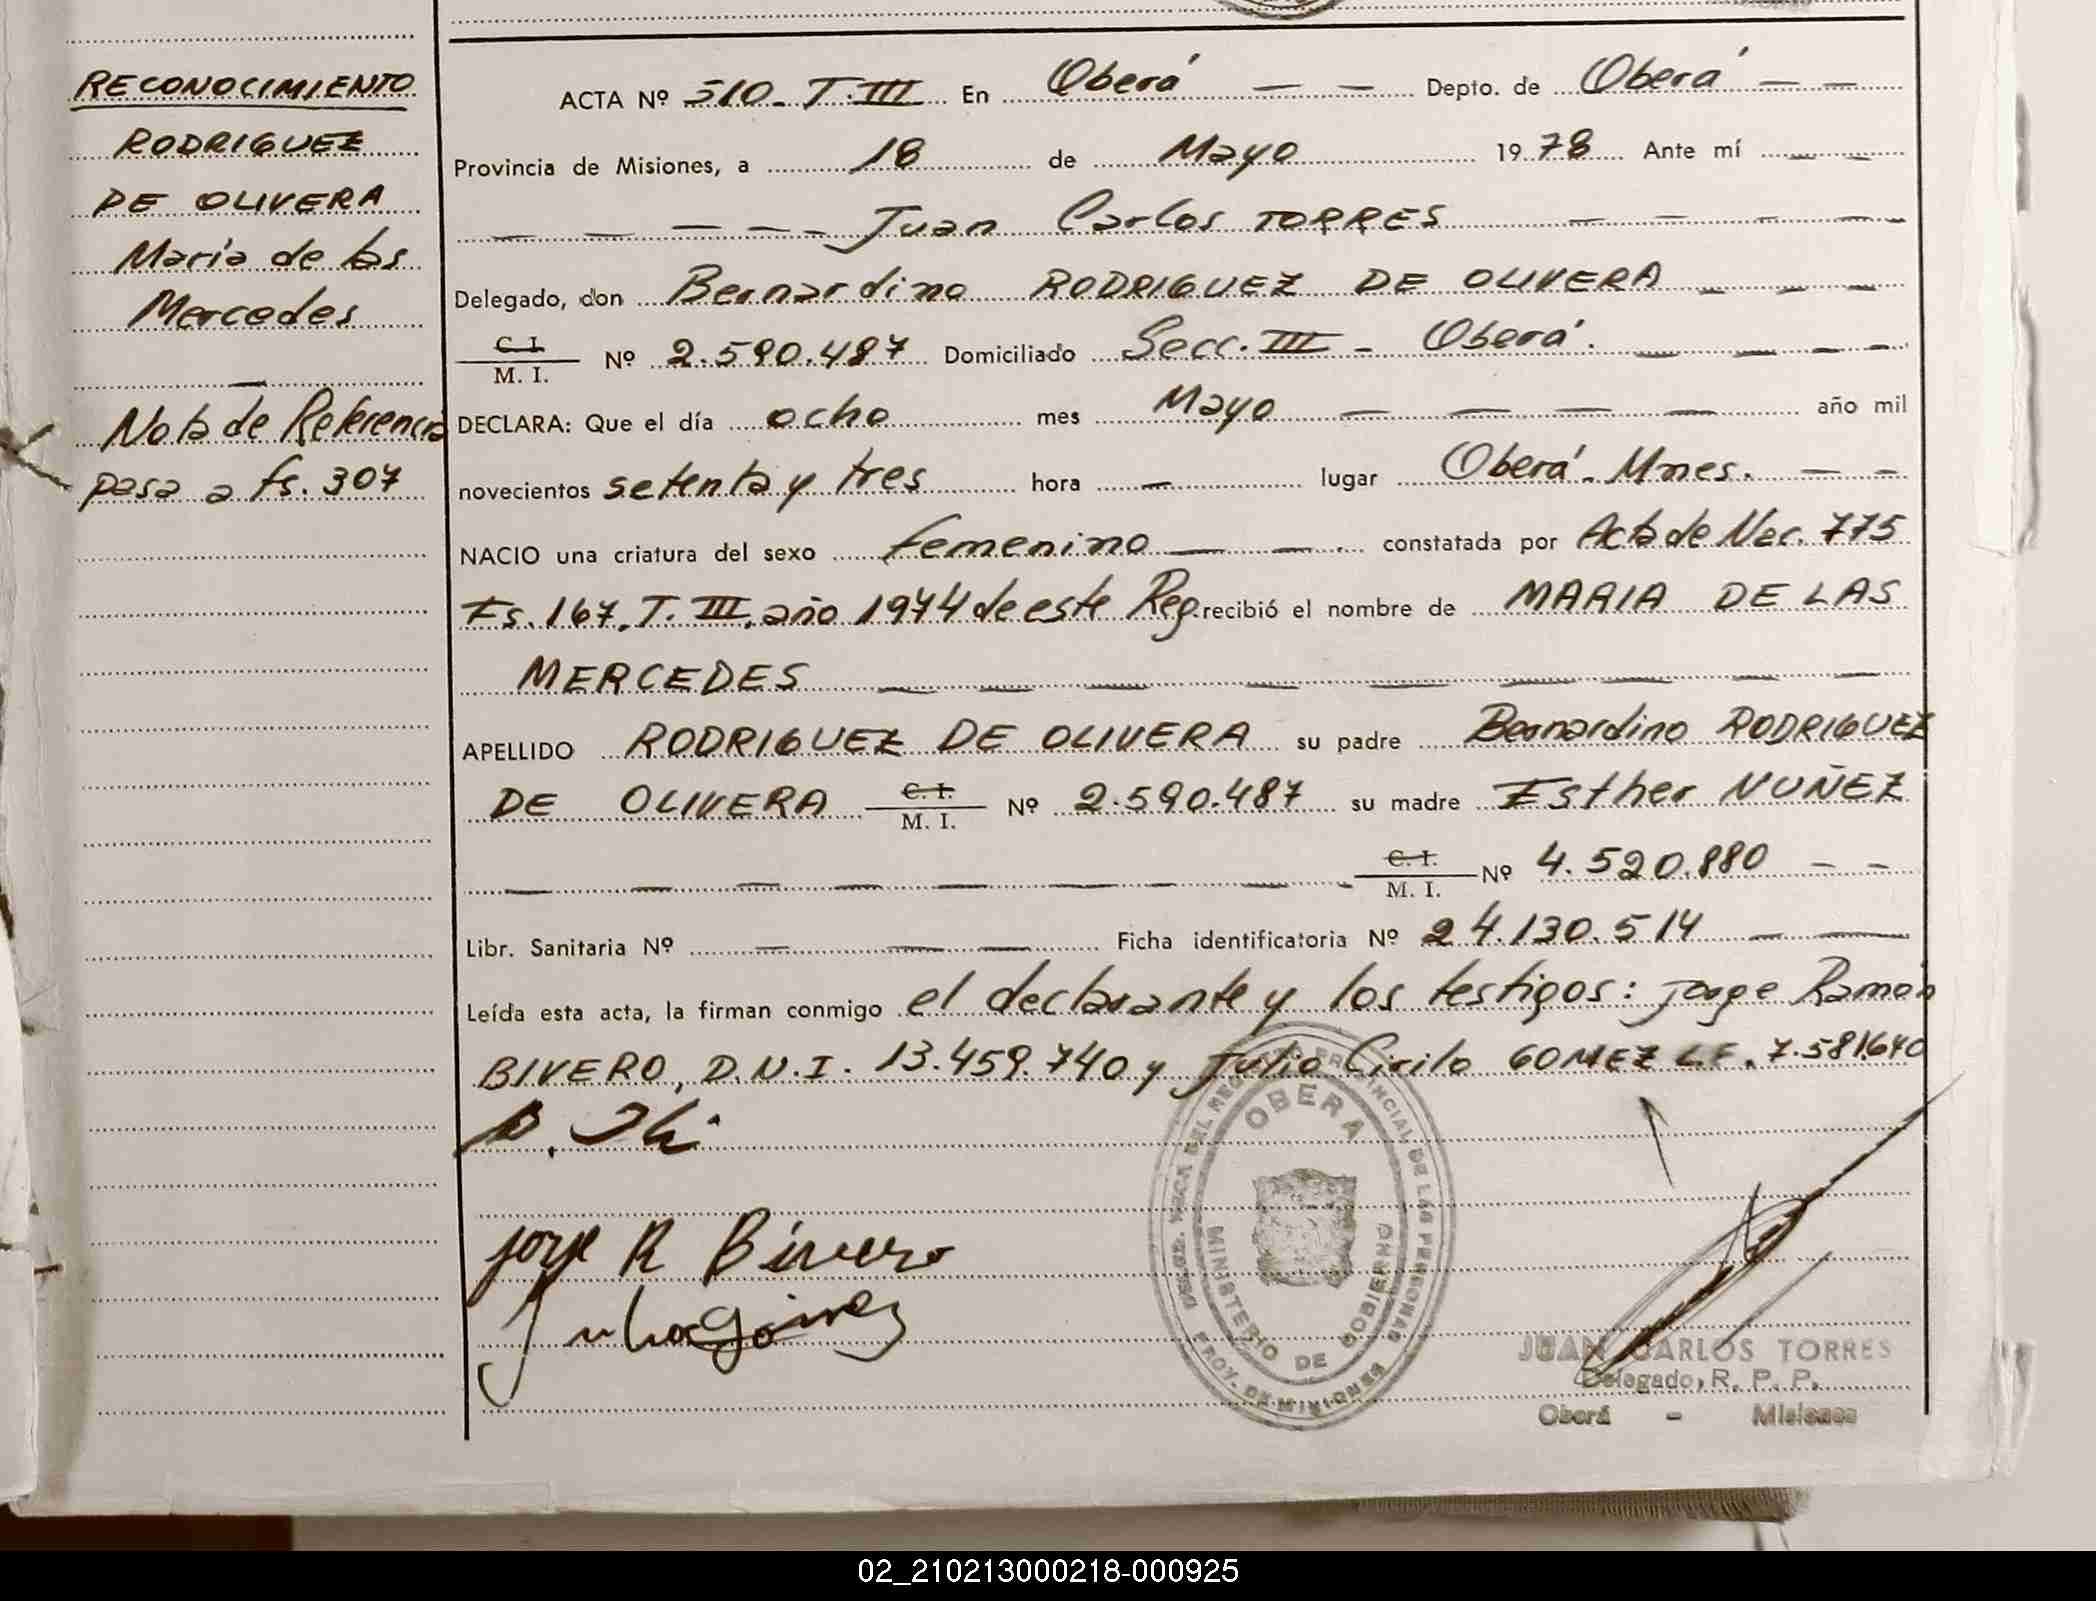 RECONOCIMIENTO
RODRIGUEZ
DE OLIVERA
Maria de las
Mercedes
Nota de Referencia
pasa a fs. 307
ACTA Nº 510. T. III En Oberá Depto. de Oberá
Provincia de Misiones, a 18 de Mayo 1978 Ante mí
Juan Carlos TORRES
Delegado, don Bernardino RODRIGUEZ DE OLIVERA
C. I.
M. I. Nº 2.590.487 Domiciliado Secc. III - Oberá.
DECLARA: Que el día ocho mes Mayo año mil
novecientos setenta y tres hora — lugar Oberá. Mnes.
NACIO una criatura del sexo femenino constatada por Acta de Nac. 775
Fs. 167, T. III, año 1974 de este Reg. recibió el nombre de MARIA DE LAS
MERCEDES
APELLIDO RODRIGUEZ DE OLIVERA su padre Bernardino RODRIGUEZ
DE OLIVERA C. I. / M. I. Nº 2.590.487 su madre Esther NUÑEZ
C. I.
M. I. Nº 4.520.880
Libr. Sanitaria Nº Ficha identificatoria Nº 24.130.514
Leída esta acta, la firman conmigo el declarante y los testigos: Jorge Ramón
BIVERO, D.N.I. 13.459.740 y Julio Cirilo GOMEZ L.E. 7.581.640
Jorge R Bivero
Julio Gómez
OBERA
MINISTERIO DE GOBIERNO
PROV. DE MISIONES
JUAN CARLOS TORRES
Delegado, R. P. P.
Oberá - Misiones
02_210213000218-000925